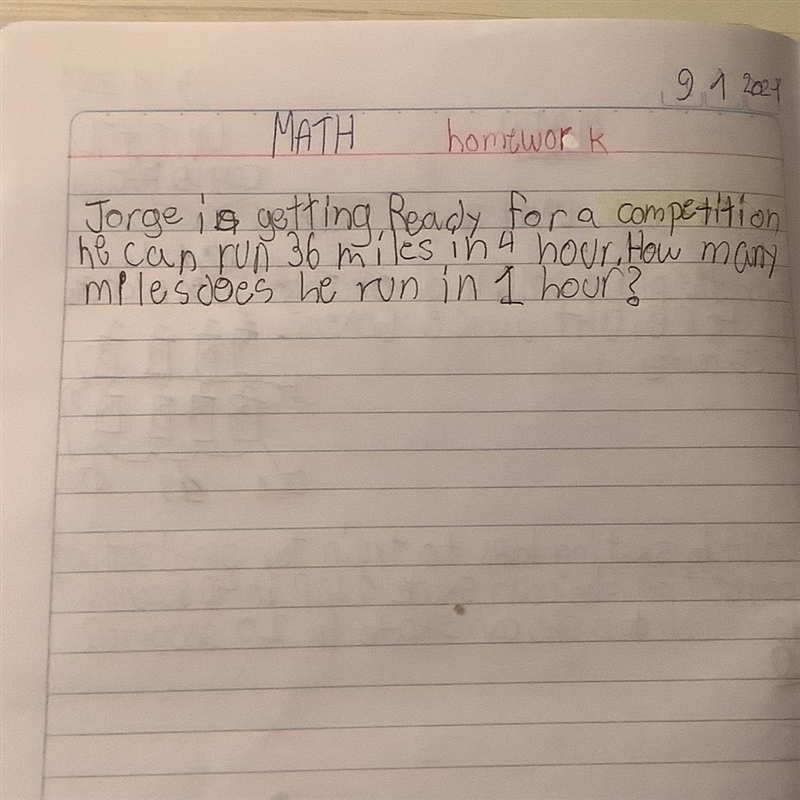 9 1 2024
MATH homework
Jorge is getting Ready for a competition
he can run 36 miles in 4 hour. How many
miles does he run in 1 hour?